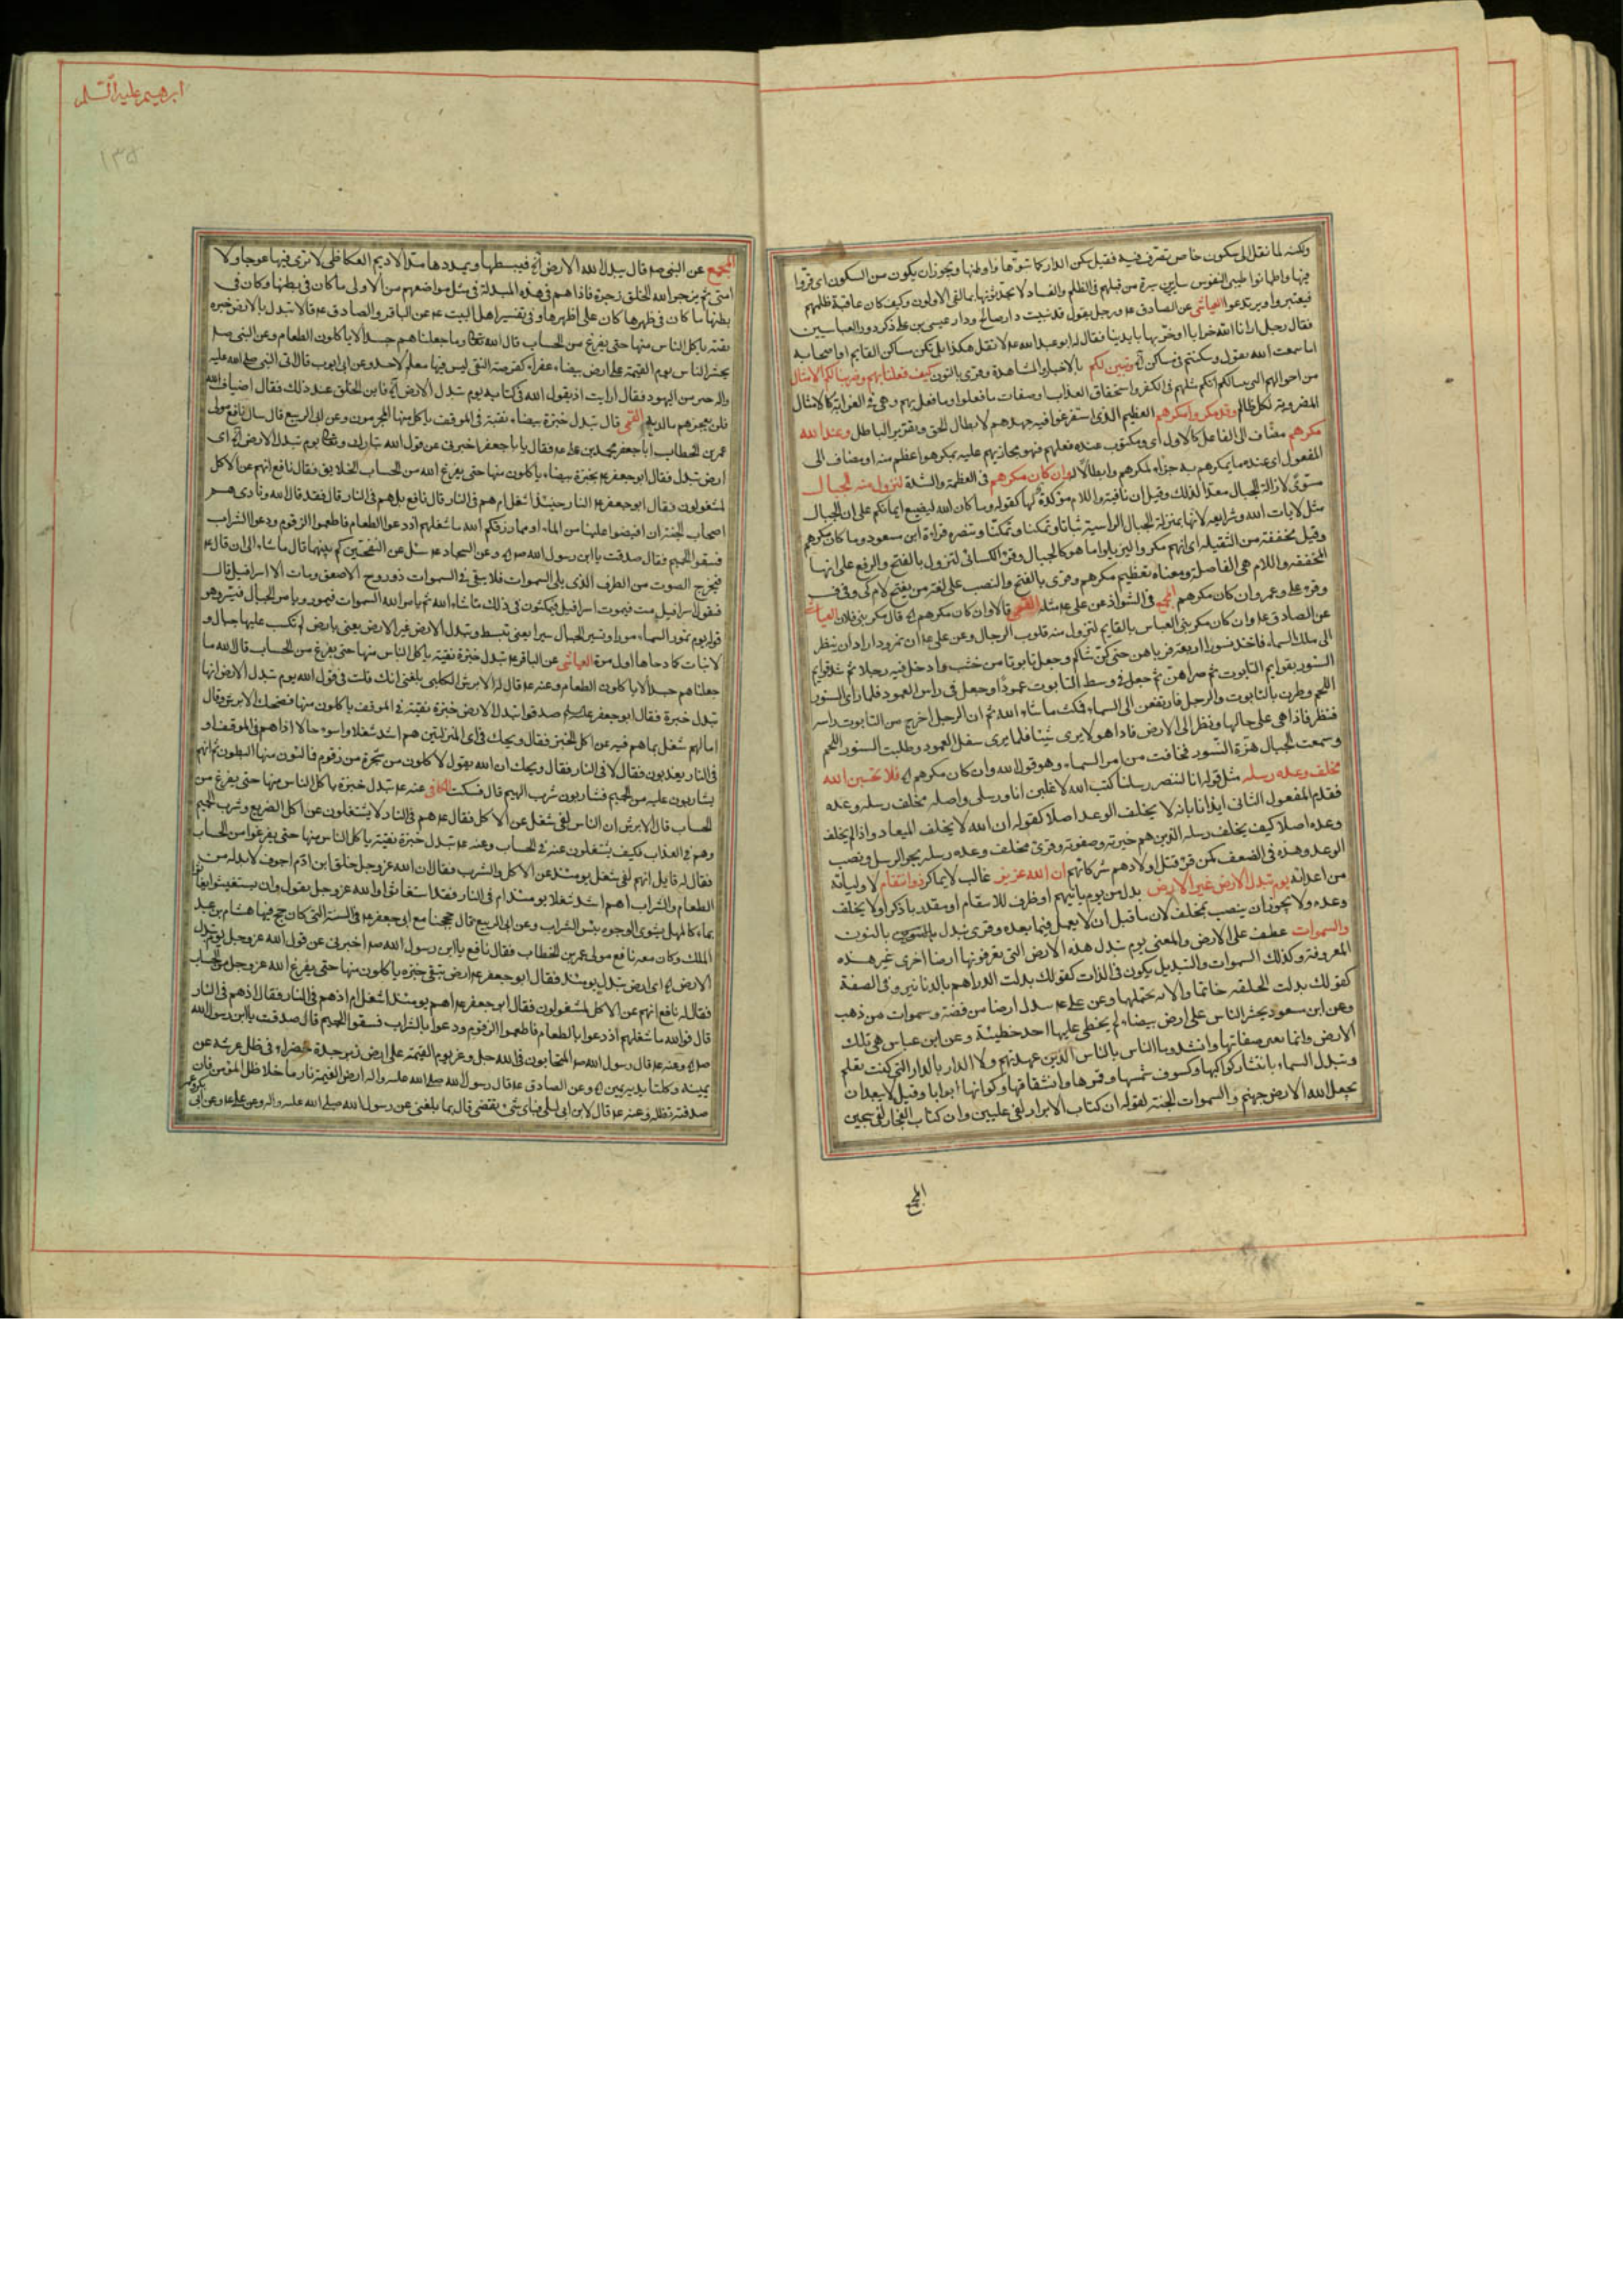 ولكنه لما نقل الى سكون خاص تصرف فيه فقيل سكن الدار كما تبوّءها واوطنها ويجوز ان يكون من السكون اى قرّوا
فيها واطمأنوا طيبى النفوس سايرين سيرة من قبلهم فى الظلم والفساد لا يحدثونها بما لقى الاولون وكيف كان عاقبة ظلمهم
فيعتبروا ويرتدعوا العياشى عن الصادق ع ورجل يقول قد بنيت دار صالح ودار عيسى بن على ذكر دور العباسيين
فقال رجل ارانا الله خرابا او خربها بايدينا فقال له ابو عبد الله ع لا تقل هكذا بل يكون مساكن القايم واصحابه
اما سمعت الله يقول وسكنتم فى مساكن وتبين لكم بالاخبار والمشاهدة وقرئ بالنون كيف فعلنا بهم وضربنا لكم الامثال
من احوالهم انكم مثلهم فى الكفر واستحقاق العذاب او صفات ما فعلوا وما فعل بهم وهى فى الغرابة كالامثال
المضروبة لكل ظالم وقد مكروا مكرهم العظيم الذى استفرغوا فيه جهدهم لابطال الحق وتقرير الباطل وعند الله
مكرهم مضاف الى الفاعل كالاول اى ومكتوب عنده فعلهم فهو مجازيهم عليه بمكر هو اعظم منه او مضاف الى
المفعول اى عنده ما يمكرهم به جزاء لمكرهم وابطالا له وان كان مكرهم فى العظمة والشدة لتزول منه الجبال
مسوّى لازالة الجبال معدّا لذلك وقيل ان نافية واللام مؤكدة لها كقوله وما كان الله ليضيع ايمانكم على ان الجبال
مثل لايات الله وشرايعه لانها بمنزلة الجبال الراسية ثباتا وتمكنا وتنصره قراءة ابن مسعود وما كان مكرهم
وقيل مخففة من الثقيلة اى انهم مكروا ليزيلوا ما هو كالجبال وقرئ الكسائى لتزول بالفتح والرفع على انها
المخففة واللام هى الفاصلة ومعناه تعظيم مكرهم وقرئ بالفتح والنصب على لغة من يفتح لام كى
وقرء على وعمر وان كان مكرهم المجمع فى الشواذ عن على ع مثله القمى قال وان كان مكرهم قال مكر بنى فلان العياشى
عن الصادق ع وان كان مكر بنى العباس بالقايم لتزول منه قلوب الرجال وعن على ع ان نمرود اراد ان ينظر
الى ملك السماء فاخذ نسورا اربعة فرباهن حتى وجعل تابوتا من خشب وادخل فيه رجلا ثم شد قوايم
النسور بقوايم التابوت ثم جعل فى وسط التابوت عمودا وجعل فى راس العمود فلما راى النسور
اللحم وطرن بالتابوت والرجل فارتفعن الى السماء فمكث ما شاء الله ثم ان الرجل اخرج من التابوت راسه
فنظر فاذا هى على حالها ونظر الى الارض فاذا هو لا يرى شيئا فلما يرى سفل العمود وطلبت النسور اللحم
وسمعت الجبال هزة النسور فخافت من امر السماء وهو قول الله وان كان مكرهم فلا تحسبن الله
مخلف وعده رسله مثل قوله انا لننصر رسلنا كتب الله لاغلبن انا ورسلى واصله مخلف رسله وعده
فقدم المفعول الثانى ايذانا بانه لا يخلف الوعد اصلا كقوله ان الله لا يخلف الميعاد واذا لم يخلف
وعده اصلا كيف يخلف رسله الذين هم خيرته وصفوته وقرئ مخلف وعده رسله بجر الرسل ونصب
الوعد وهذه فى الضعف كمن قرء قتل اولادهم شركائهم ان الله عزيز غالب لا يماكر ذو انتقام لاوليائه
من اعدائه يوم تبدل الارض غير الارض بدل من يوم ياتيهم او ظرف للانتقام او مقدر باذكر او لا يخلف
وعده ولا يجوز ان ينصب بمخلف لان ما قبل ان لا يعمل فيما بعده وقرئ نبدل بالنون
والسموات عطف على الارض والمعنى يوم تبدل هذه الارض التى تعرفونها ارضا اخرى غير هذه
المعروفة وكذلك السموات والتبديل يكون فى الذات كقولك بدلت الدراهم بالدنانير وفى الصفة
كقولك بدلت الحلقة خاتما والاية تحتملها وعن على ع تبدل ارضا من فضة وسموات من ذهب
وعن ابن مسعود يحشر الناس على ارض بيضاء لم يخطئ عليها احد خطيئة وعن ابن عباس هى تلك
الارض وانما تغير صفاتها وانشد وما الناس بالناس الذين عهدتهم ولا الدار بالدار التى كنت تعلم
وتبدل السماء بانتثار كواكبها وكسوف شمسها وقمرها وانشقاقها وكونها ابوابا وقيل لا يبعد ان
يجعل الله الارض جهنم والسموات الجنة لقوله ان كتاب الابرار لفى عليين وان كتاب الفجار لفى سجين
المجمع
ابرهيم عليه السلم
١٣٥
المجمع عن النبى ص قال يبدل الله الارض فيبسطها ويمددها مد الاديم العكاظى لا ترى فيها عوجا ولا
امتى ثم يزجر الله الخلق زجرة فاذا هم فى هذه المبدلة فى مثل مواضعهم من الاولى ما كان فى بطنها وكان فى
بطنها ما كان فى ظهرها كان على اظهرها وفى تفسير اهل البيت ع عن الباقر والصادق ع قالا تبدل الارض خبزة
نقية ياكل الناس منها حتى يفرغ من الحساب قال الله تعالى وما جعلناهم جسدا لا ياكلون الطعام وعن النبى ص
يحشر الناس يوم القيمة على ارض بيضاء عفراء كقرصة النقى ليس فيها معلم لاحد وعن ابى ايوب قال اتى النبى صلى الله عليه
واله حبر من اليهود فقال ارايت اذ يقول الله فى كتابه يوم تبدل الارض فاين الخلق عند ذلك فقال اضياف الله
فلن يعجزهم ما لديه القمى قال تبدل خبزة بيضاء نقية فى الموقف ياكل منها المجرمون وعن ابى الربيع قال سال نافع مولى
عمر بن الخطاب ابا جعفر محمد بن على ع فقال يا با جعفر اخبرنى عن قول الله تبارك وتعالى يوم تبدل الارض اى
ارض تبدل فقال ابو جعفر ع بخبزة بيضاء ياكلون منها حتى يفرغ الله من حساب الخلايق فقال نافع انهم عن الاكل
لمشغولون فقال ابو جعفر ع حينئذ اشغل ام هم فى النار قال نافع بل هم فى النار قال فقد قال الله ونادى
اصحاب الجنة ان افيضوا علينا من الماء او مما رزقكم الله ما شغلهم اذ دعوا الطعام فاطعموا الزقوم ودعوا الشراب
فسقوا الحميم فقال صدقت يا ابن رسول الله وعن السجاد ع سئل عن النفختين كم بينهما قال ما شاء الى ان قال ع
فيخرج الصوت من الطرف الذى يلى السموات فلا يبقى فى السموات ذو روح الا صعق ومات الا اسرافيل قال
فيقول لاسرافيل مت فيموت اسرافيل فيمكثون فى ذلك ما شاء الله ثم يامر الله السموات فيمور ويامر الجبال فتسير وهو
قوله يوم تمور السماء مورا وتسير الجبال سيرا يعنى تبسط وتبدل الارض غير الارض يعنى بارض لم تكسب عليها جبال و
لا نبات كما دحاها اول مرة العياشى عن الباقر ع تبدل خبزة نقية ياكل الناس منها حتى يفرغ من الحساب قال الله ما
جعلناهم جسدا لا ياكلون الطعام وعنه ع قال له الابرش الكلبى بلغنى انك قلت فى قول الله يوم تبدل الارض انها
تبدل خبزة فقال ابو جعفر صدقوا تبدل الارض خبزة نقية فى الموقف ياكلون منها فضحك الابرش وقال
اما لهم شغل بما هم فيه عن اكل الخبز فقال ويحك فى اى المنزلتين هم اشد شغلا واسوء حالا اذا هم فى الموقف او
فى النار يعذبون فقال لا فى النار فقال ويحك ان الله يقول لاكلون من شجرة من زقوم فمالئون منها البطون
فشاربون عليه من الحميم فشاربون شرب الهيم قال فسكت الكافى عنه ع تبدل خبزة ياكل الناس منها حتى يفرغ من
الحساب قال الابرش ان الناس لفى شغل عن الاكل فقال ع هم فى النار لا يشتغلون عن اكل الضريع وشرب الحميم
وهم فى العذاب فكيف يشتغلون عنه فى الحساب وعنه ع تبدل خبزة نقية ياكل الناس منها حتى يفرغوا من الحساب
فقال له قايل انهم لفى شغل يومئذ عن الاكل والشرب فقال ان الله عز وجل خلق ابن ادم اجوف لا بد له من
الطعام والشراب اهم اشد شغلا يومئذ ام فى النار فقد استغاثوا والله عز وجل يقول وان يستغيثوا يغاثوا
بماء كالمهل يشوى الوجوه بئس الشراب وعن ابى الربيع قال حججنا مع ابى جعفر ع فى السنة التى كان حج فيها هشام بن عبد
الملك وكان معه نافع مولى عمر بن الخطاب فقال نافع يا ابن رسول الله اخبرنى عن قول الله عز وجل يوم تبدل
الارض اى ارض تبدل يومئذ فقال ابو جعفر ع ارض تبقى خبزة ياكلون منها حتى يفرغ الله عز وجل من الحساب
فقال له نافع انهم عن الاكل لمشغولون فقال ابو جعفر ع اهم يومئذ اشغل ام اذ هم فى النار فقال اذ هم فى النار
قال فوالله ما شغلهم اذ دعوا بالطعام فاطعموا الزقوم ودعوا بالشراب فسقوا الحميم قال صدقت يا ابن رسول الله
وعنه ع قال رسول الله ص المتحابون فى الله جل وعز يوم القيمة على ارض زبرجدة خضراء فى ظل عرشه عن
يمينه وكلتا يديه يمين وعن الصادق ع قال رسول الله صلى الله عليه واله ارض القيمة نار ما خلا ظل المؤمن فان
صدقته تظله وعنه ع قال لابن ابى ليلى باى شئ تقضى قال بما بلغنى عن رسول الله صلى الله عليه واله وعن على ع وعن ابى